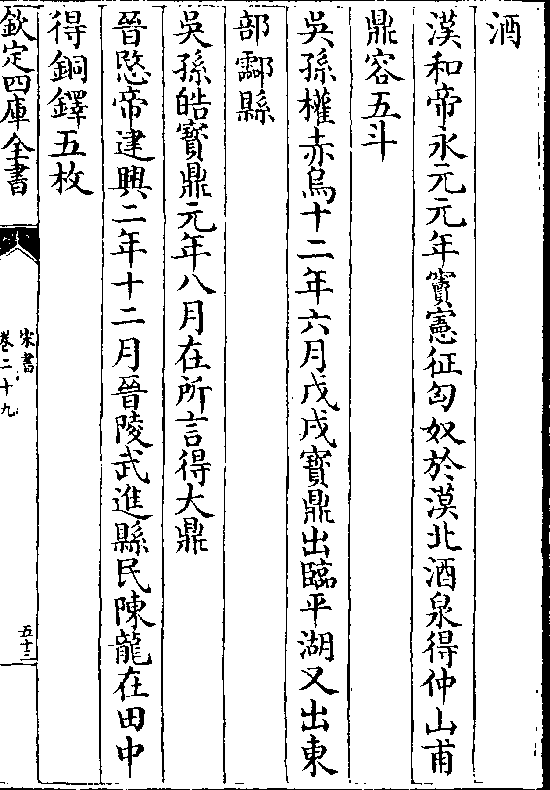 酒
漢和帝永元元年竇憲征匈奴於漠北酒泉得仲山甫
鼎容五斗
吳孫權赤烏十二年六月戊戌寶鼎出臨平湖又出東
部酃縣
吳孫皓寶鼎元年八月在所言得大鼎
晉愍帝建興二年十二月晉陵武進縣民陳龍在田中
得銅鐸五枚
欽定四庫全書
宋書
卷二十九
五十三